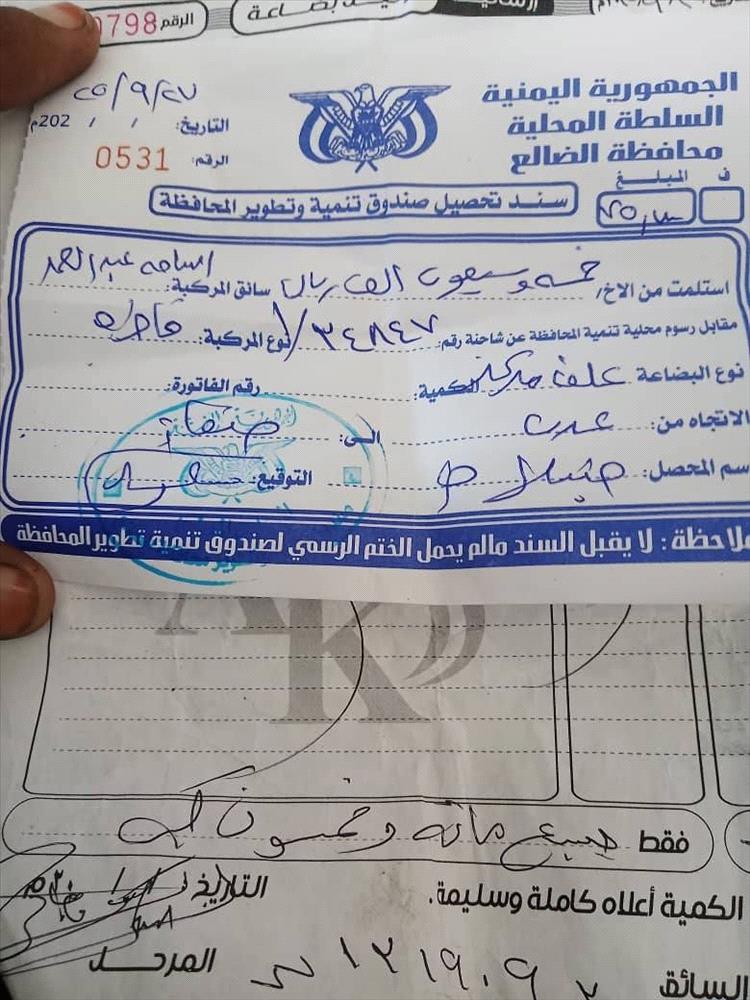 الرقم 0798
الجمهورية اليمنية
السلطة المحلية
محافظة الضالع
٢٥/٩/٢٧
التاريخ: / / 202م
الرقم: 0531
المبلغ
ف
سند تحصيل صندوق تنمية وتطوير المحافظة
استلمت من الاخ/ خمسة وسبعون الف ريال سائق المركبة: اسامه عبد
مقابل رسوم محلية تنمية المحافظة عن شاحنة رقم: ٣٤٨٤٧/١ نوع المركبة: قاطره
نوع البضاعة علف مركز الكمية: رقم الفاتورة:
الاتجاه من: عدن الى: صنعاء
سم المحصل: التوقيع:
ملاحظة: لا يقبل السند مالم يحمل الختم الرسمي لصندوق تنمية تطوير المحافظة
فقط سبع مائه وخمسون
الكمية أعلاه كاملة وسليمة. التاريخ
السائق المرحل